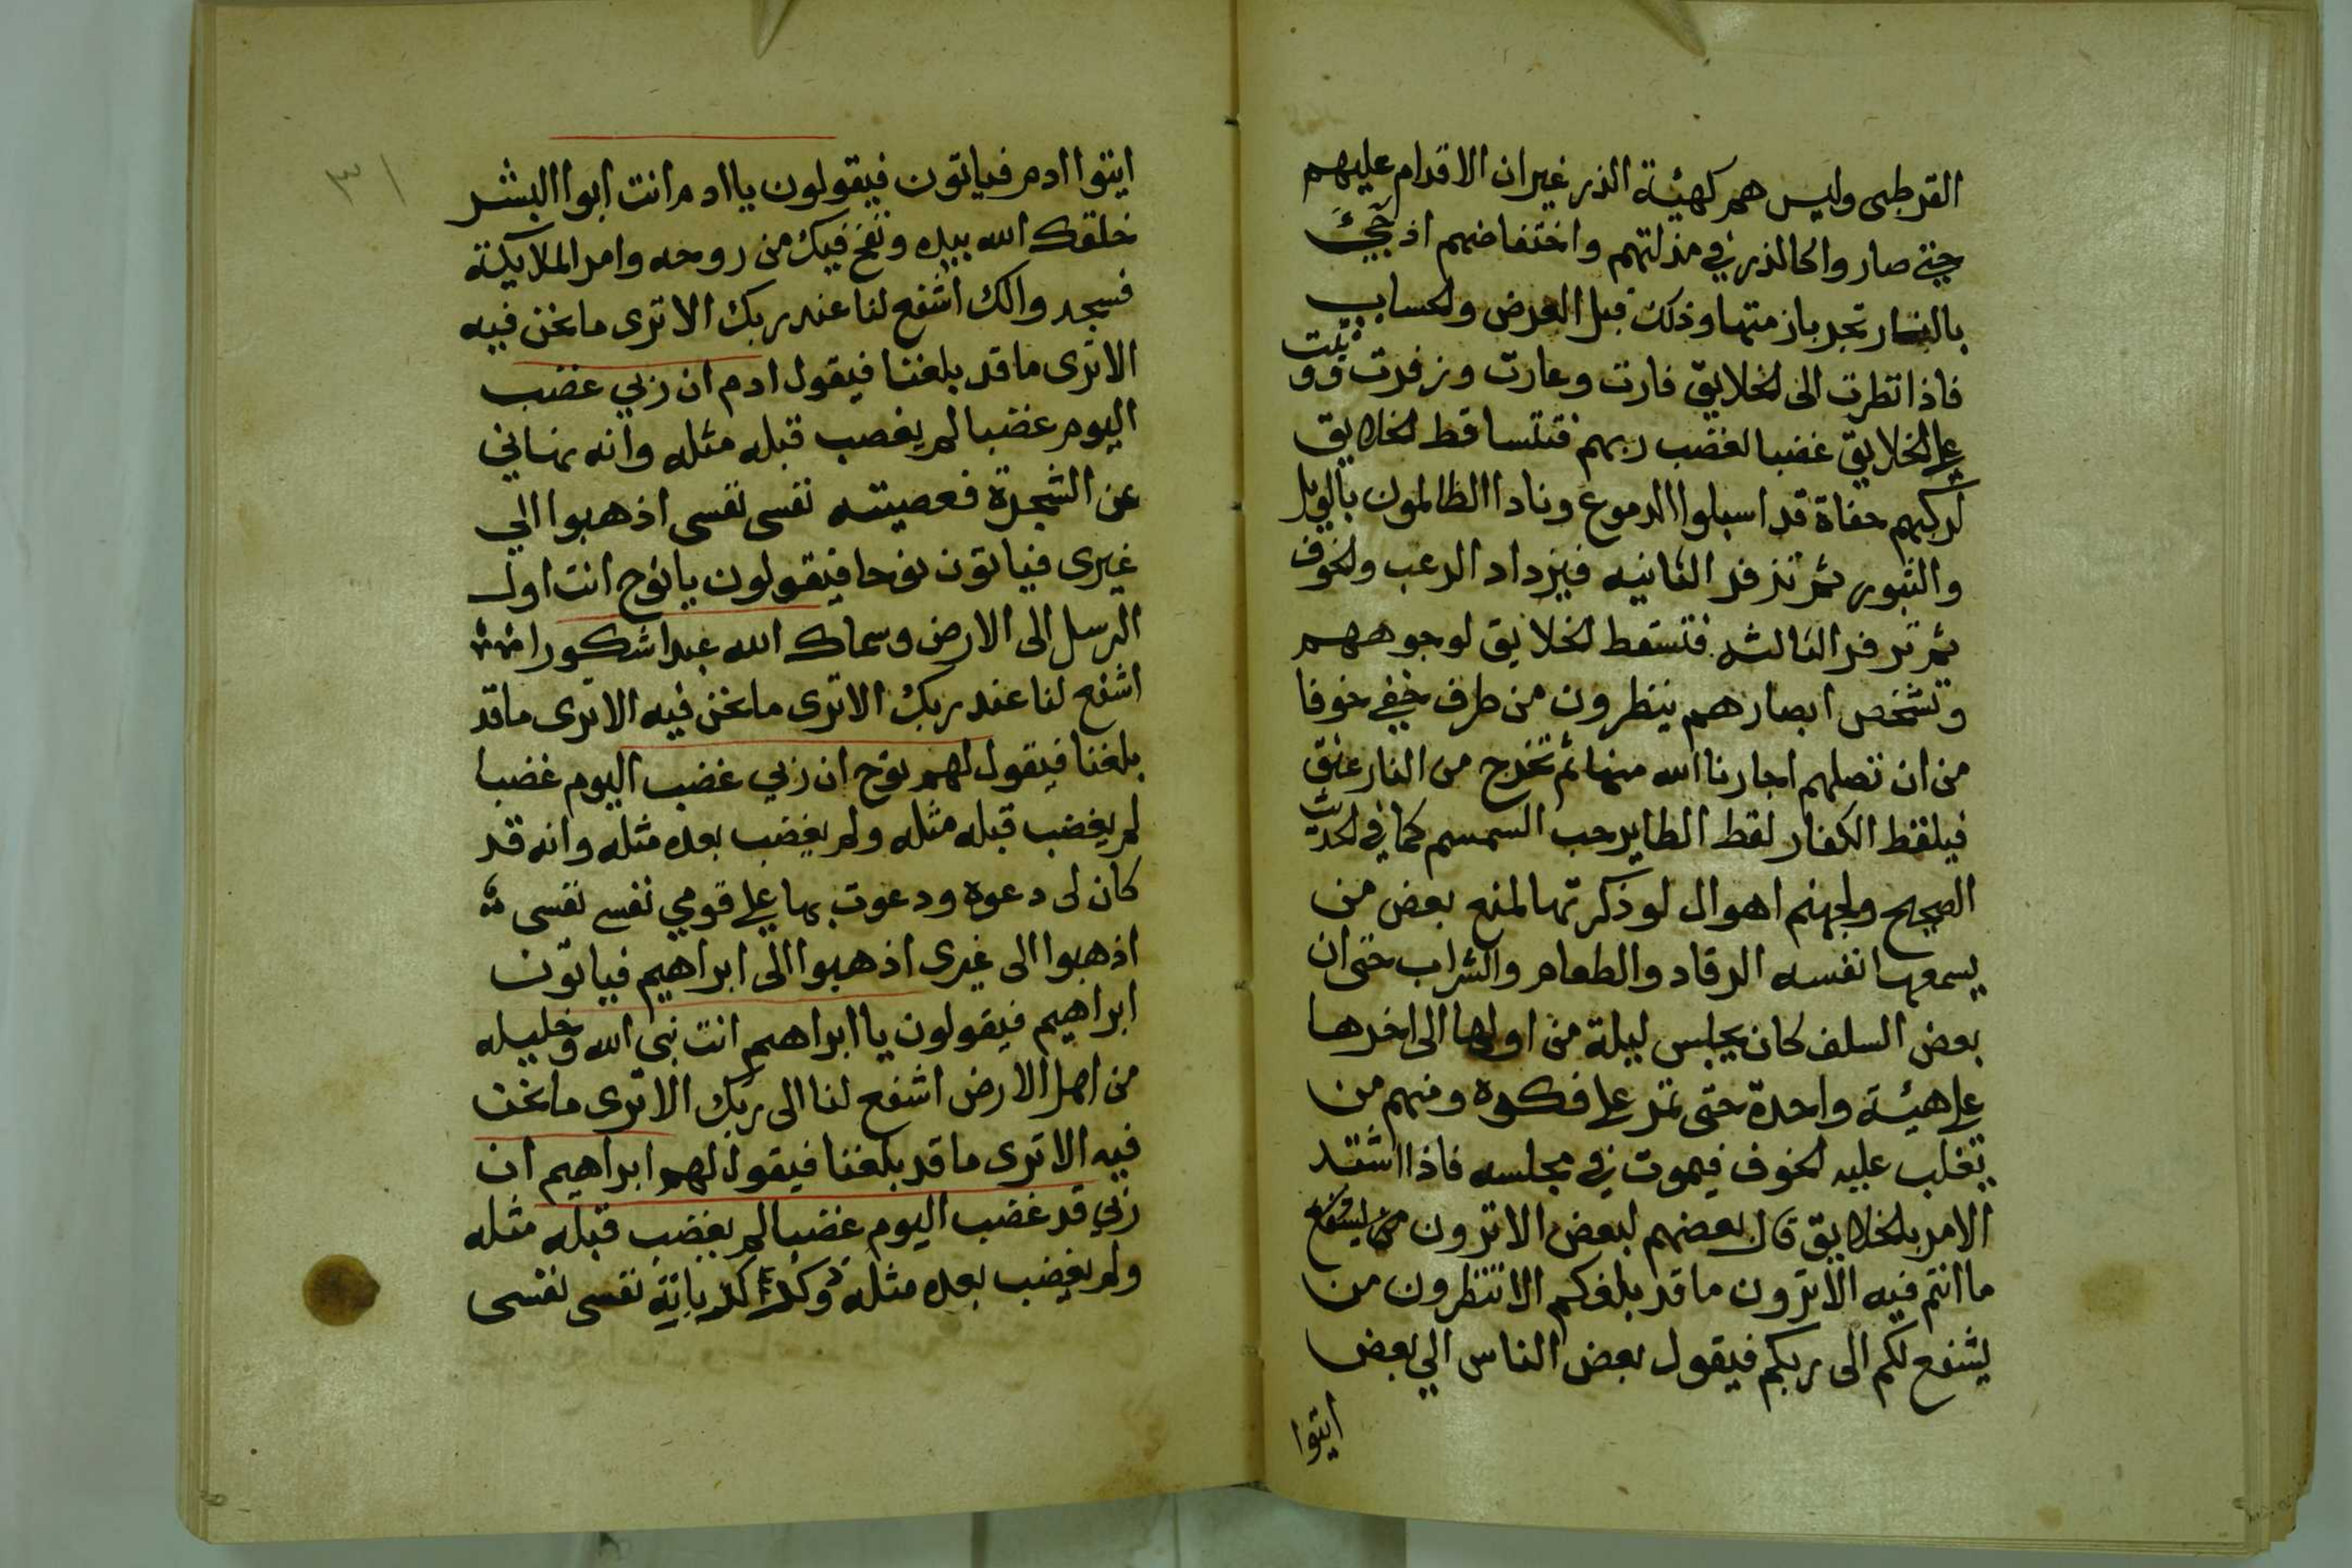 القرطبى وليس هم كهيئة الذر غير ان الاقدام عليهم
حتى صاروا كالذر في مذلتهم وانخفاضهم اذ جيء
بالنار تجر بازمتها وذلك قبل العرض والحساب
فاذا نظرت الى الخلايق فارت وعارت وزفرت ووثبت
على الخلايق غضبا لغضب ربهم فتتساقط الخلايق
لركبهم حفاة قد اسبلوا الدموع ونادا الظالمون بالويل
والثبور ثم تزفر الثانيه فيزداد الرعب والخوف
ثم تزفر الثالثه فتسقط الخلايق لوجوههم
وتشخص ابصارهم ينظرون من طرف خفي خوفا
من ان تصلهم اجارنا الله منها ثم تخرج من النار عنق
فيلقط الكفار لقط الطاير حب السمسم كما في الحديث
الصحيح ولجهنم اهوال لو ذكرتها لمنع بعض من
يسمعها نفسه الرقاد والطعام والشراب حتى ان
بعض السلف كان يجلس ليلة من اولها الى اخرها
على هيئة واحدة حتى تمر على فكره ومنهم من
تغلب عليه الخوف فيموت في مجلسه فاذا اشتد
الامر بالخلايق قال بعضهم لبعض الا ترون من يشفع
ما انتم فيه الا ترون ما قد بلغكم الا تنظرون من
يشفع لكم الى ربكم فيقول بعض الناس الي بعض
ايتوا
٣١
ايتوا ادم فياتون فيقولون يا ادم انت ابوا البشر
خلقك الله بيده ونفخ فيك من روحه وامر الملايكة
فسجدوا لك اشفع لنا عند ربك الا ترى ما نحن فيه
الا ترى ما قد بلغنا فيقول ادم ان ربي غضب
اليوم غضبا لم يغضب قبله مثله وانه نهاني
عن الشجرة فعصيته نفسى نفسى اذهبوا الي
غيرى فياتون نوحا فيقولون يا نوح انت اول
الرسل الى الارض وسماك الله عبدا شكورا
اشفع لنا عند ربك الا ترى ما نحن فيه الا ترى ما قد
بلغنا فيقول لهم نوح ان ربي غضب اليوم غضبا
لم يغضب قبله مثله ولم يغضب بعده مثله وانه قد
كان لى دعوه ودعوت بها على قومي نفسي نفسى
اذهبوا الى غيرى اذهبوا الى ابراهيم فياتون
ابراهيم فيقولون يا ابراهيم انت نبى الله وخليله
من اهل الارض اشفع لنا الى ربك الا ترى ما نحن
فيه الا ترى ما قد بلغنا فيقول لهم ابراهيم ان
ربي قد غضب اليوم غضبا لم يغضب قبله مثله
ولم يغضب بعده مثله وذكر كذباته نفسى نفسى